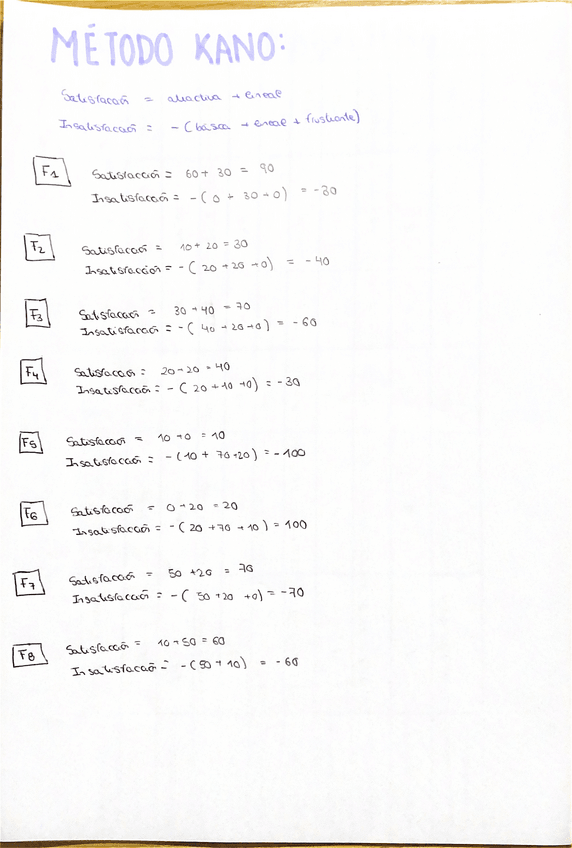 MÉTODO KANO:
Satisfacció = atractiva + lineal
Insatisfacció = - (bàsica + lineal + frustrante)
F1
Satisfacció = 60 + 30 = 90
Insatisfacció = - ( 0 + 30 + 0) = -30
F2
Satisfacció = 10 + 20 = 30
Insatisfacción = - ( 20 + 20 + 0) = - 40
F3
Satisfacció = 30 + 40 = 70
Insatisfacció = - ( 40 + 20 + 0) = - 60
F4
Satisfacció = 20 + 20 = 40
Insatisfacció = - ( 20 + 10 + 0) = - 30
F5
Satisfacció = 10 + 0 = 10
Insatisfacció = - (10 + 70 + 20) = - 100
F6
Satisfacció = 0 + 20 = 20
Insatisfacció = - ( 20 + 70 + 10 ) = 100
F7
Satisfacció = 50 + 20 = 70
Insatisfacció = - ( 50 + 20 + 0) = - 70
F8
Satisfacció = 10 + 50 = 60
Insatisfacció = - (50 + 10) = - 60